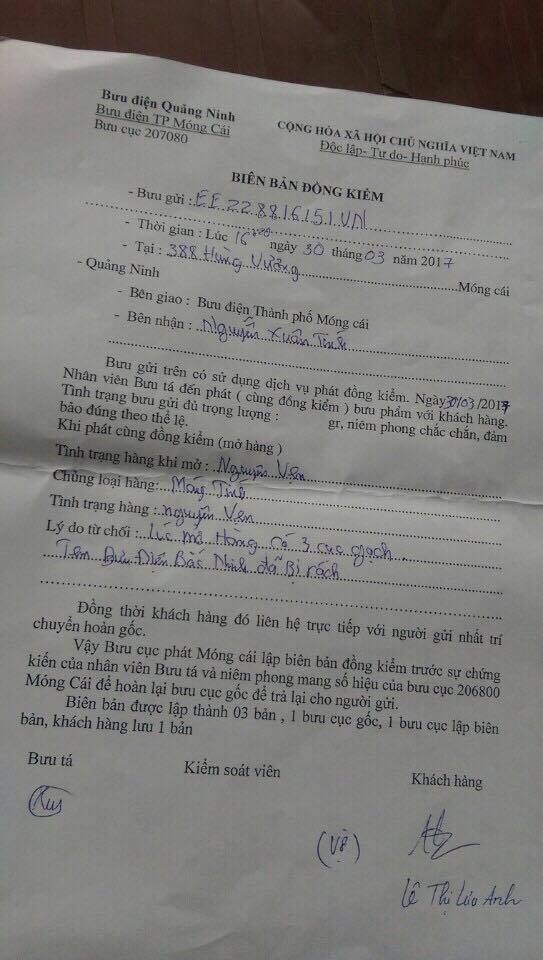 Bưu điện Quảng Ninh
Bưu điện TP Móng Cái
Bưu cục 207080
CỘNG HÒA XÃ HỘI CHỦ NGHĨA VIỆT NAM
Độc lập- Tự do- Hạnh phúc
BIÊN BẢN ĐỒNG KIỂM
- Bưu gửi : EE228816151VN
- Thời gian : Lúc 16 ngày 30 tháng 03 năm 2017
- Tại : 388 Hùng Vương Móng cái
- Quảng Ninh
- Bên giao : Bưu điện Thành phố Móng cái
- Bên nhận : Nguyễn Xuân
Bưu gửi trên có sử dụng dịch vụ phát đồng kiểm. Ngày 30/03/2017
Nhân viên Bưu tá đến phát ( cùng đồng kiểm ) bưu phẩm với khách hàng.
Tình trạng bưu gửi đủ trọng lượng : gr, niêm phong chắc chắn, đảm
bảo đúng theo thể lệ.
Khi phát cùng đồng kiểm (mở hàng )
Tình trạng hàng khi mở : Nguyên Vẹn
Chủng loại hàng: Máy Tính
Tình trạng hàng : nguyên Vẹn
Lý do từ chối : Lúc mở Hàng có 3 cục gạch
Tem Bưu Điện Bắc Ninh đã Bị rách
Đồng thời khách hàng đó liên hệ trực tiếp với người gửi nhất trí
chuyển hoàn gốc.
Vậy Bưu cục phát Móng cái lập biên bản đồng kiểm trước sự chứng
kiến của nhân viên Bưu tá và niêm phong mang số hiệu của bưu cục 206800
Móng Cái để hoàn lại bưu cục gốc để trả lại cho người gửi.
Biên bản được lập thành 03 bản , 1 bưu cục gốc, 1 bưu cục lập biên
bản, khách hàng lưu 1 bản
Bưu tá Kiểm soát viên Khách hàng
(Vợ)
Lê Thị Lào Anh